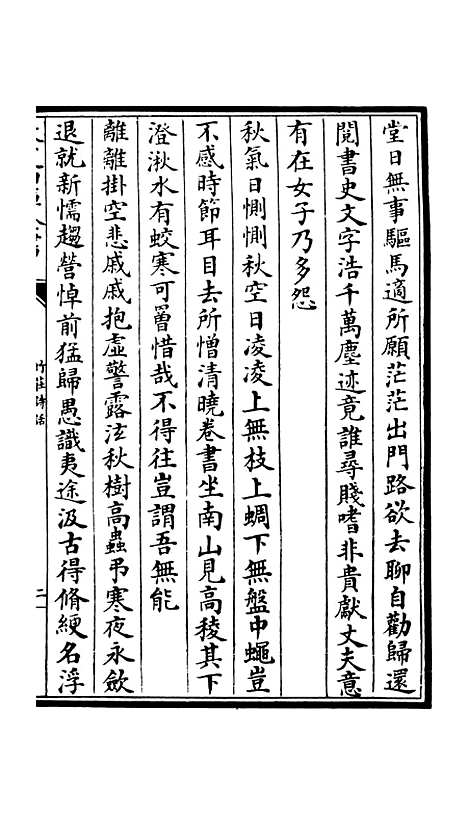 堂日無事驅馬適所願茫茫出門路欲去聊自勸歸還
閱書史文字浩千萬塵迹竟誰尋賤嗜非貴獻丈夫意
有在女子乃多怨
秋氣日惻惻秋空日凌凌上無枝上蜩下無盤中蠅豈
不感時節耳目去所憎清曉卷書坐南山見高稜其下
澄湫水有蛟寒可罾惜哉不得往豈謂吾無能
離離掛空悲戚戚抱虛警露泫秋樹高蟲弔寒夜永斂
退就新懦趨營悼前猛歸愚識夷途汲古得脩綆名浮
竹莊詩話